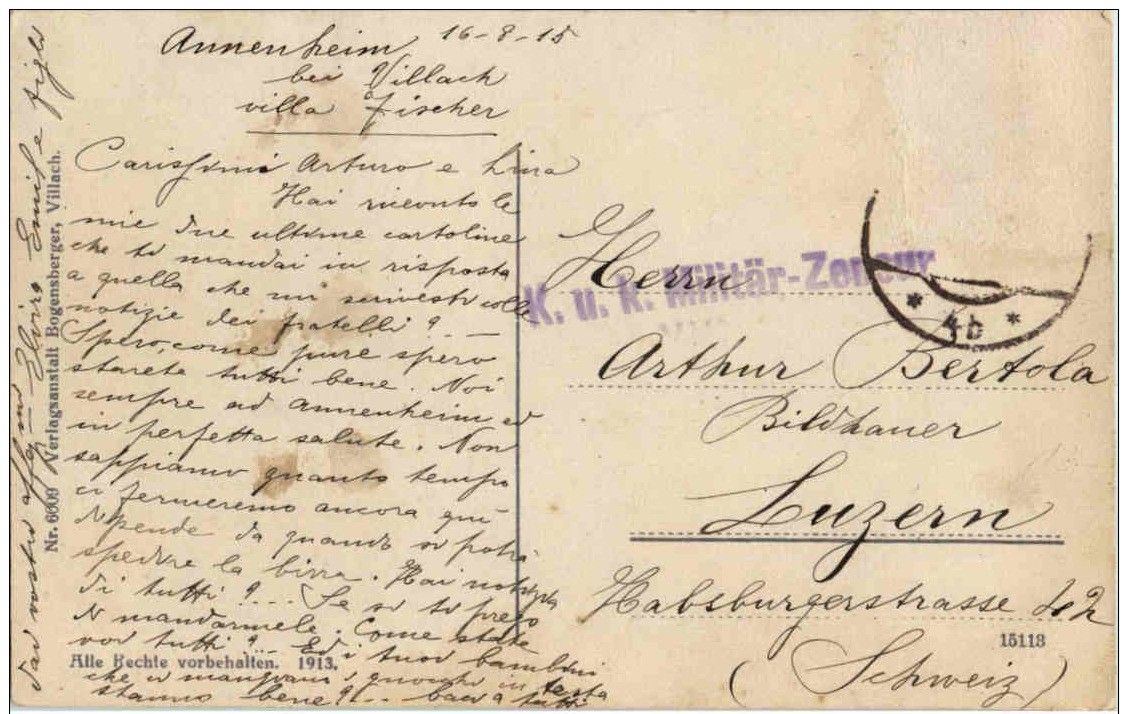 Annenheim 16-8-15
bei Villach
villa Fischer
Carissimi Arturo e Lina
Hai ricevuto le
mie due ultime cartoline
che ti mandai in risposta
a quella che mi scrivesti colle
notizie dei fratelli? ...
Spero, come pure spero
starete tutti bene. Noi
sempre ad Annenheim ed
in perfetta salute. Non
sappiamo quanto tempo
ci fermeremo ancora qui
dipende da quando si potrà
spedire la birra. Hai notizia
di tutti? ... Se si ti prego
di mandarmele. Come state
voi tutti? ... Ed i tuoi bambini
che ci mangiavi i gnocchi in testa
stanno bene? ... baci a tutti
dai vostri affmi Elvira Emil e figli
Nr. 6609 Verlagsanstalt Bogensberger, Villach.
Alle Rechte vorbehalten. 1913.
K. u. k. Militär-Zensur
* 4b *
Herrn
Arthur Bertola
Bildhauer
Luzern
Habsburgerstrasse
15113
(Schweiz)